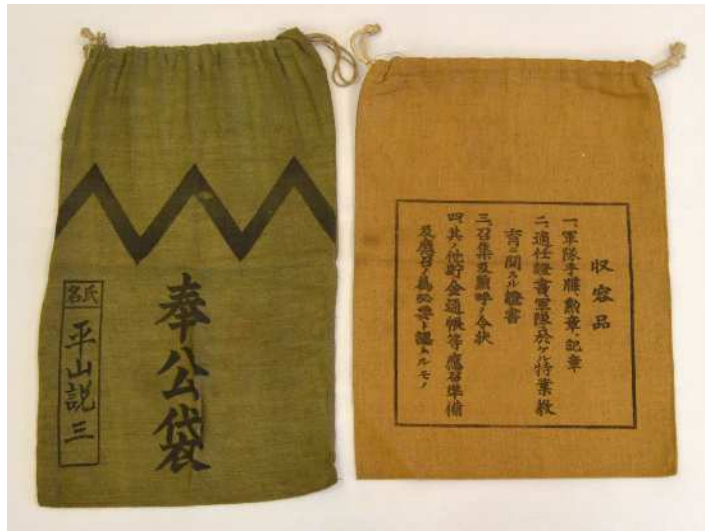 奉公袋
氏名
平山説三
収容品
一、軍隊手牒、勲章、記章
二、適任證書、軍隊ニ於ケル特業教
育ニ関スル證書
三、召集及點呼ノ令状
四、其ノ他貯金通帳等應召準備
及應召ノ為必要ト認ムルモノ